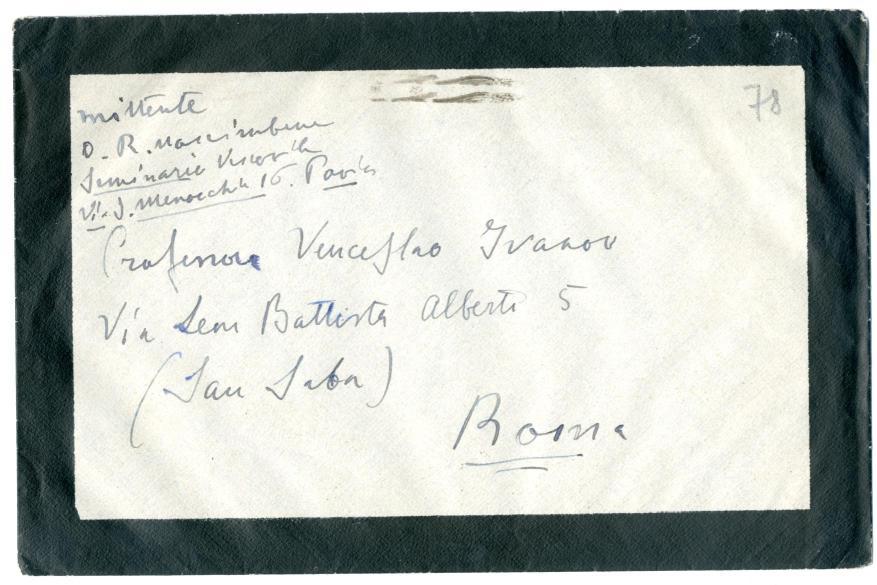 mittente
D. R. Nascimbene
Seminario Vescovile
Via J. Menocchio 16. Pavia
78
Professore Venceslao Ivanov
Via Leon Battista Alberti 5
(San Saba)
Roma